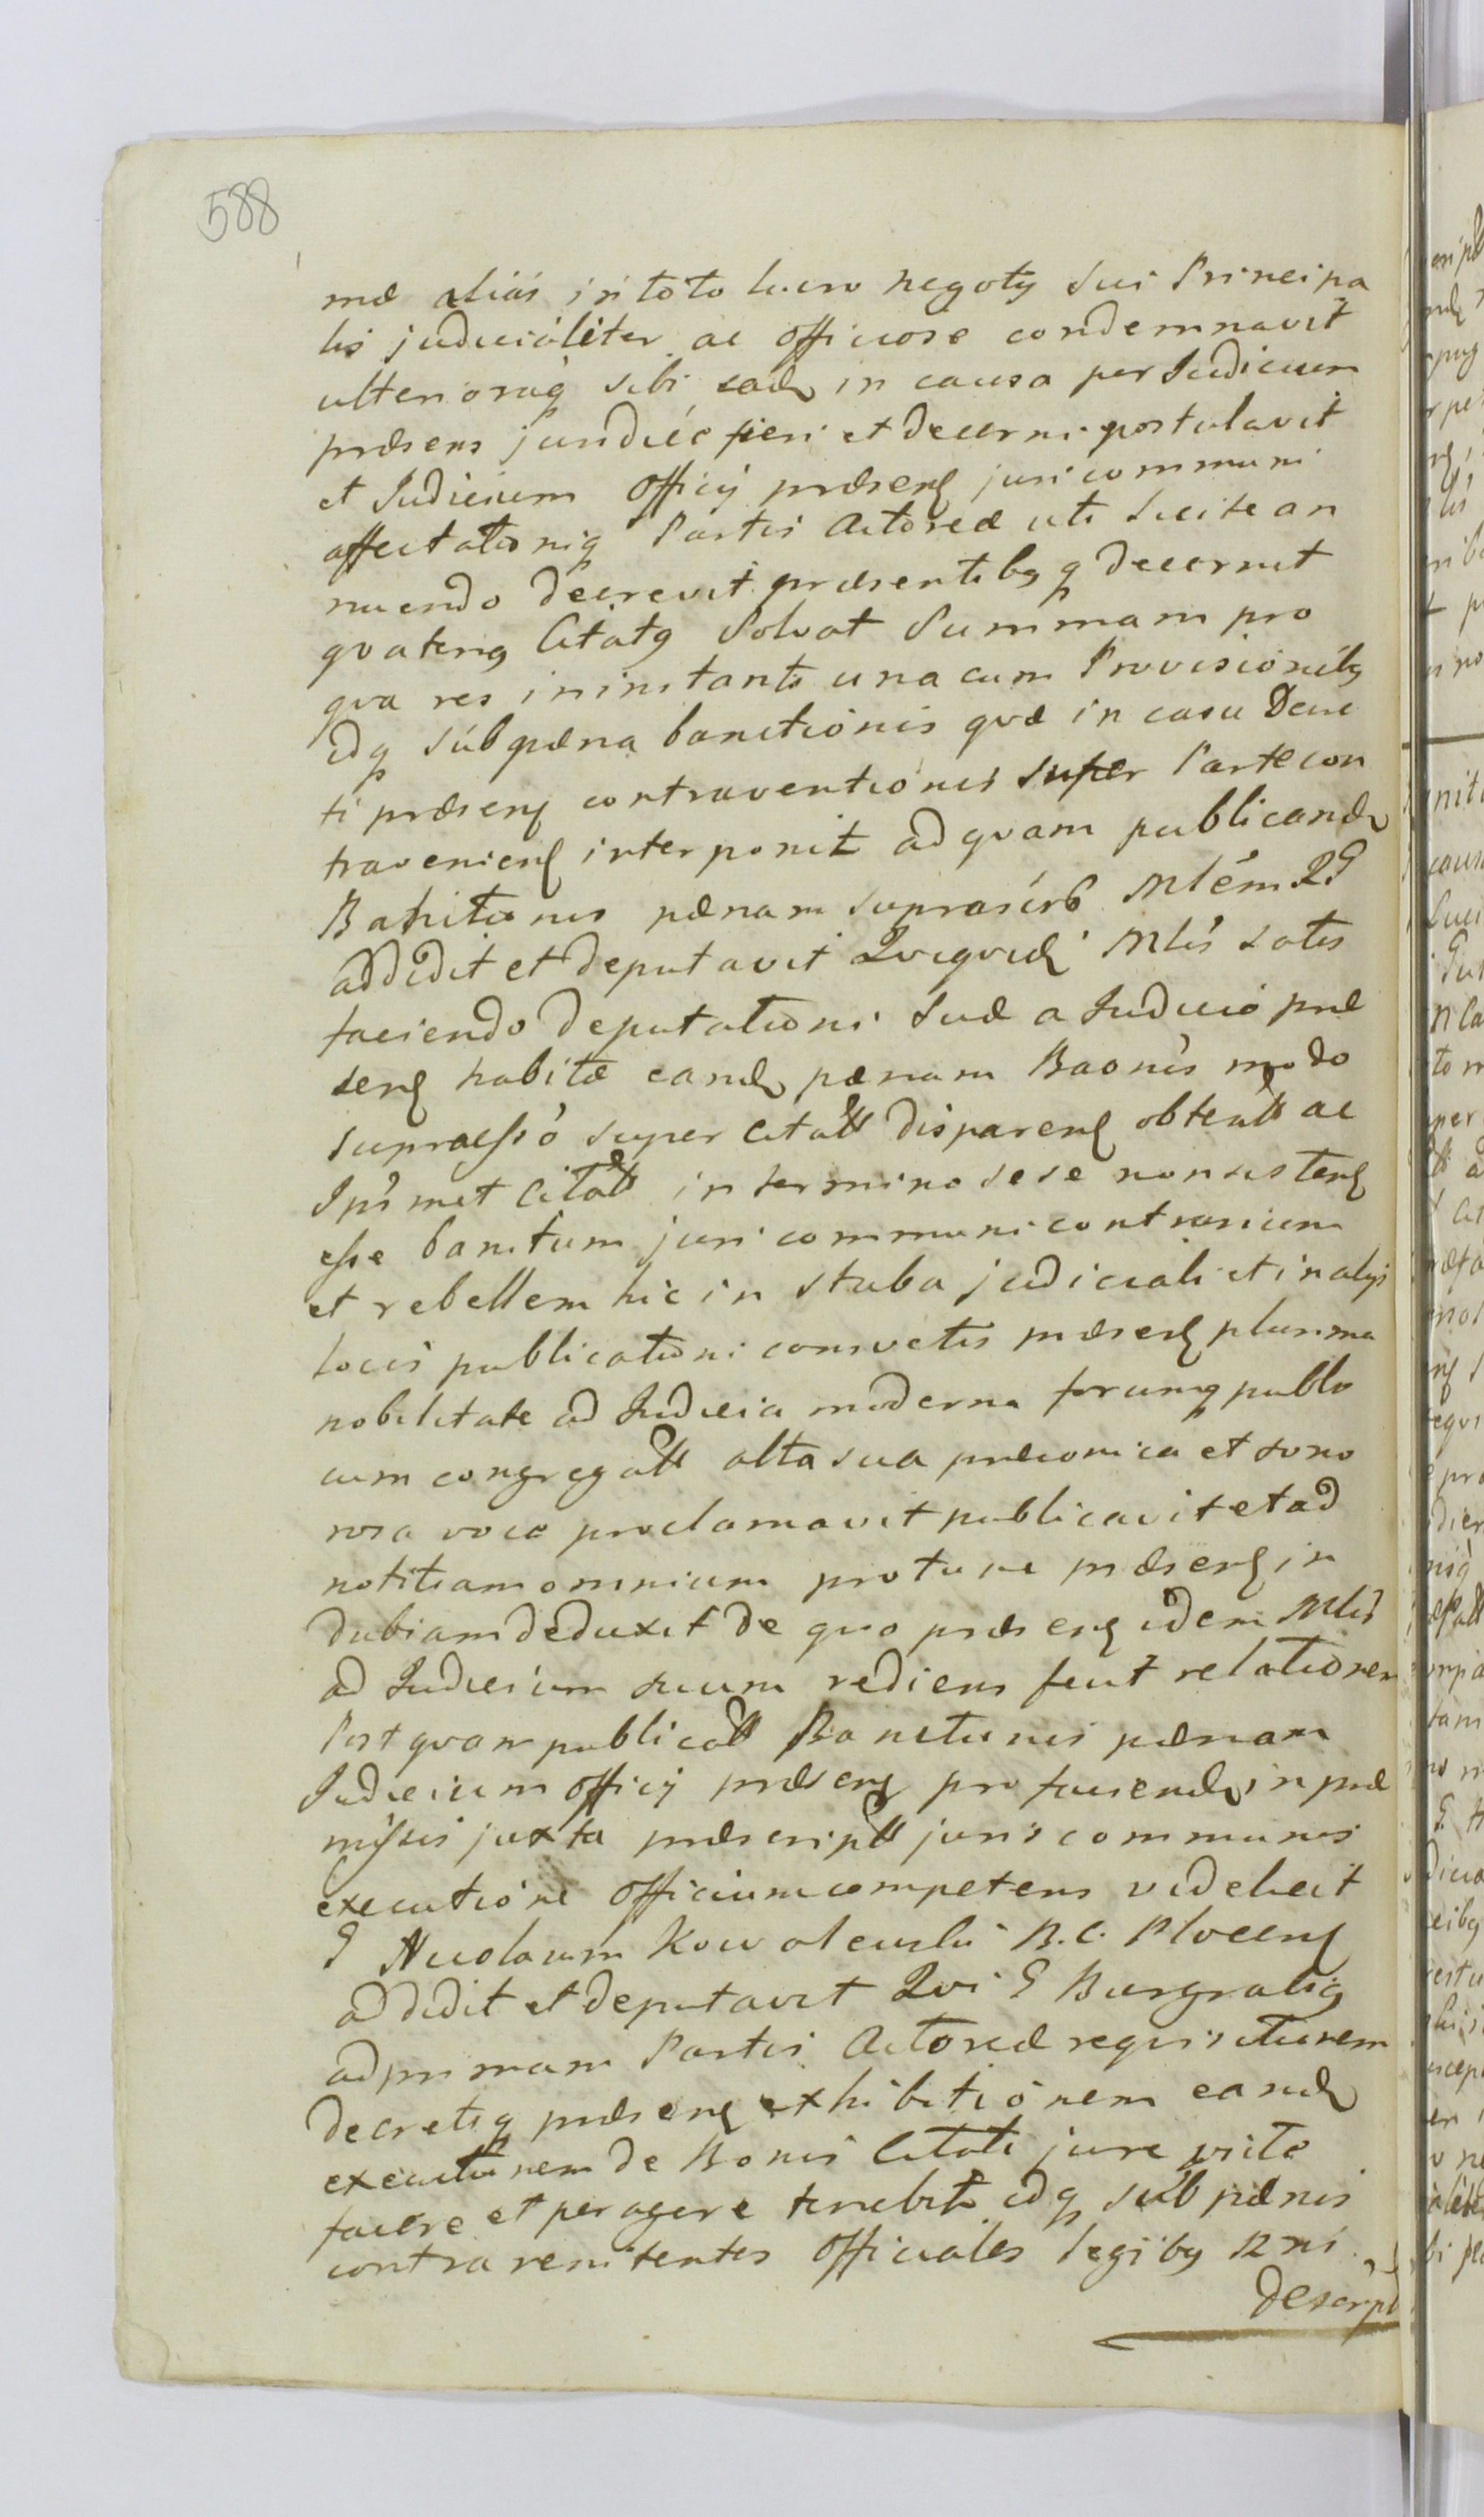 588
mæ aliás in toto lucro negoty sui Principa
lis judicialiter ac officiose condemnavit
ulterioráq sibi eadm in causa per Judicium
præsens juridicé fieri et decerni postulavit
et Judicium Officij præsens juri communi
affectationiq Partis Actoreæ uti Licite an
nuendo decrevit præsentibq q decernit
qvatenq Citatq Solvat Summam pro
qva res in instanti una cum Provisionibq
idq sub pæna banitionis qvæ in casu Decre
ti præsens contraventionis super Parte con
traveniens interponit ad qvam publicandm
Banitionis pænam suprascrb Mlém RG
addidit et deputavit Qviqvidm Mlis satis
faciendo deputationi suæ a Judicio præ
sens habitæ eandm pænam Baonis modo
supraesso super citatt dispareng obtentt ac
Ipsmet Citatt in termino sese non sisteng
esse banitum juri communi contrarium
et rebellem hic in stuba judiciali et in alys
locis publicationi consvetis præseng plurima
nobilitate ad Judicia moderna forumq publi
cum congregatt alta sua præconica et sono
rosa voce proclamavit publicavit et ad
notitiam omnium protunc præseng in
dubiam deduxit de quo præseng idem Mlis
ad Judicium suum rediens fecit relationem
Post qvam publicatt Banitionis pænam
Judicium Officij præseng pro faciendm in præ
missis juxta præscriptt juris communis
executione Officium competens videlicet
G Nicolaum Kowalewski B. C. Ploceng
addidit et deputavit Qvi G Burgrabiq
ad primam Partis Actoreæ reqvisitionem
decretiq præseng exhibitionem eandm
executionem de Bonis Citati jure victo
facere et peragere tenebit idq súb pænis
contra renitentes Officiales legibq Rni
descrpt